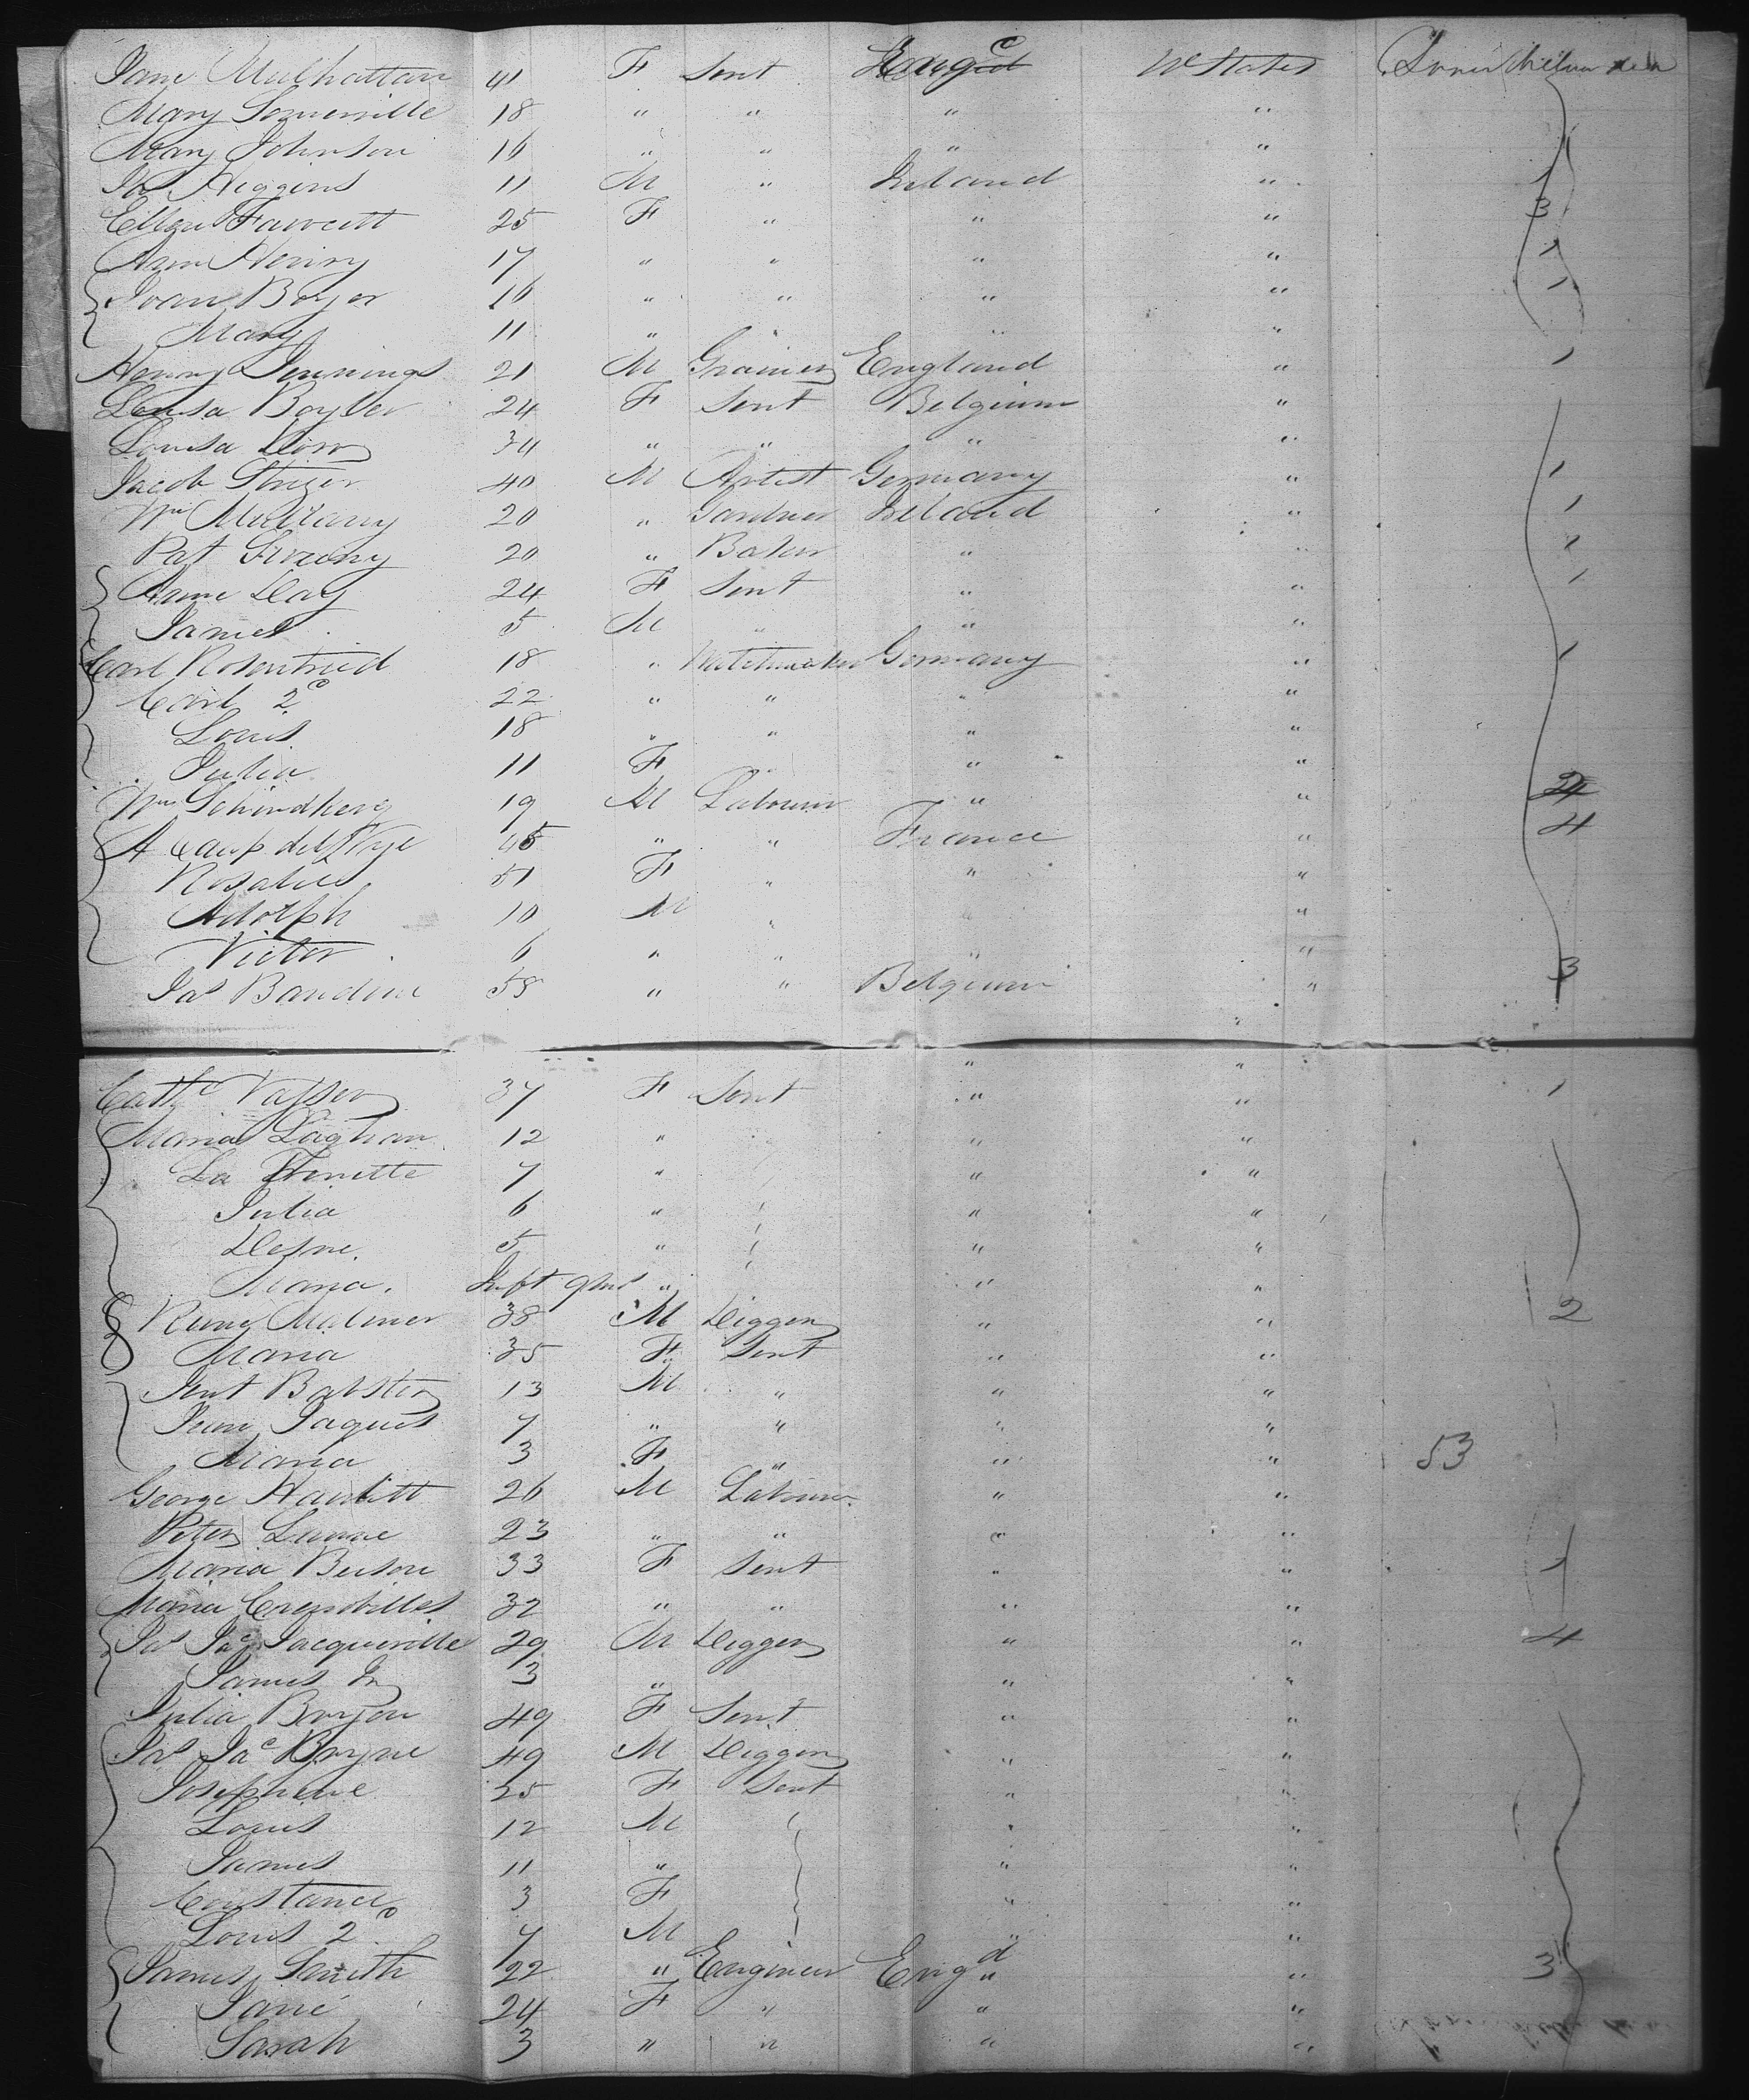 Jane Mulhattan 41 F Sert Engd U States Lower
Mary Somerville 18 " " " "
Mary Johnson 16 " " " "
Jas Higgins 11 M " Ireland " 1
Ellen Fawcett 25 F " " " 3
Ann Henry 17 " " " " 1
Joan Boyer 16 " " " " 1
Mary 11 " " " "
Henry Jennings 21 M Grainer England " 1
Louisa Boyller 24 F Sert Belgium "
Louisa Dorr 34 " " " "
Jacob 40 M Artist Germany " 1
Wm Mullany 20 " Gardner Ireland " 1
Pat 20 " Baker " "
Anne Day 24 F Sert " " 1
James 5 M " " "
Carl Rosentried 18 " Watchmaker Germany " 1
Carl 2d 22 " " " "
Louis 18 " " " "
Julia 11 F " "
Wm Schindberg 19 M Labourer " " 24
A 45 " " France " 4
Rosalie 51 F " " "
Adolph 10 M " " "
Victor 6 " " " "
Jas Baudine 58 " " Belgium " 3
" "
Cathe Vasser 37 F Sert " " 1
Maria Laghan 12 " " "
La 7 " " "
Julia 6 " " "
Desne 5 " " "
Maria Inft 9 ms " " "
Rume Malmer 38 M Digger " " 2
Maria 35 F Sert " "
Jent Babster 13 M " " "
Jean Jaques 7 " " " "
Maria 3 F " " " 53
George Hawlett 26 M Labourer " "
Peter Lunne 23 " " " "
Maria Buson 33 F Sert " " 1
Maria 32 " " " "
Jas Jac Jacqueville 29 M Digger " " 4
James Jr 3 " " "
Julia Bryon 49 F Sert " "
Jas Jac Bryne 49 M Digger " "
Josephine 25 F Sert " "
Louis 12 M " "
James 11 " " "
Constance 3 F " "
Louis 2d 7 M " "
James Smith 22 " Engineer Engd " 3
Jane 24 F " " "
Sarah 3 " " " "